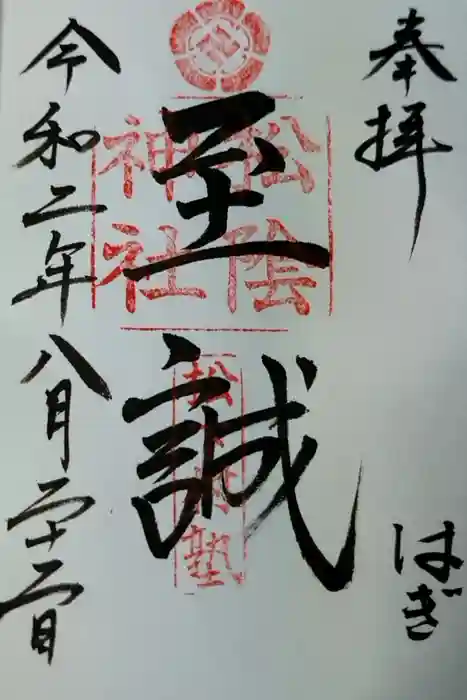 奉拝
はぎ
至誠
松陰
神社
松下村塾
令和二年八月二十二日